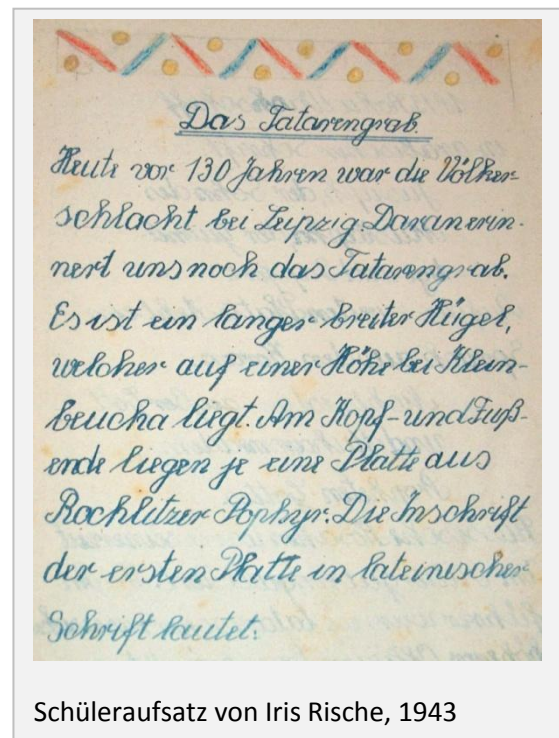 Das Tatarengrab.
Heute vor 130 Jahren war die Völker-
schlacht bei Leipzig. Daran erin-
nert uns noch das Tatarengrab.
Es ist ein langer breiter Hügel,
welcher auf einer Höhe bei Klein-
beucha liegt. Am Kopf- und Fuß-
ende liegen je eine Platte aus
Rochlitzer Pophyr. Die Inschrift
der ersten Platte in lateinischer
Schrift lautet:
Schüleraufsatz von Iris Rische, 1943